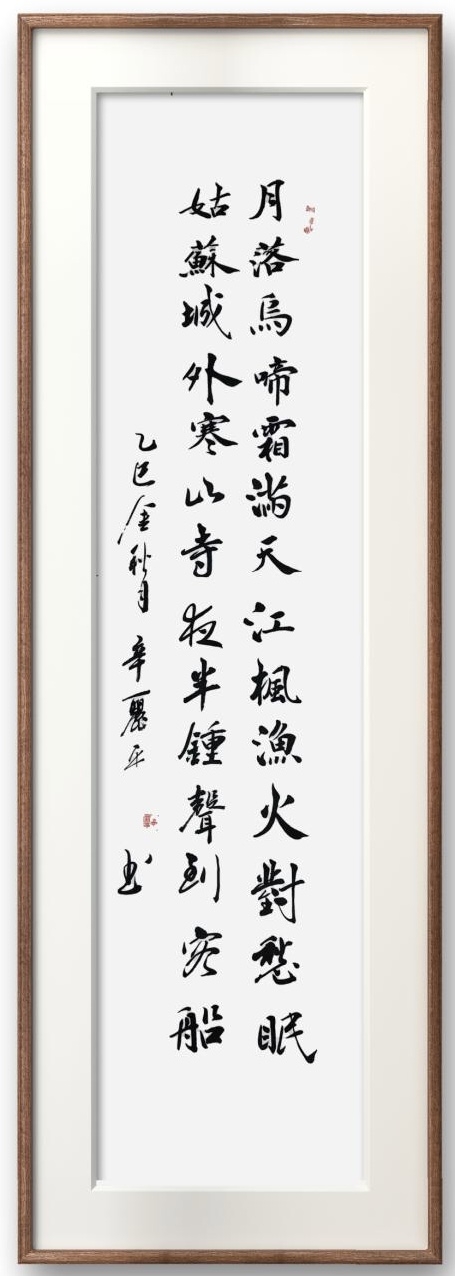 月落烏啼霜滿天江楓漁火對愁眠
姑蘇城外寒山寺夜半鍾聲到客船
乙巳金秋月辛麗平
书